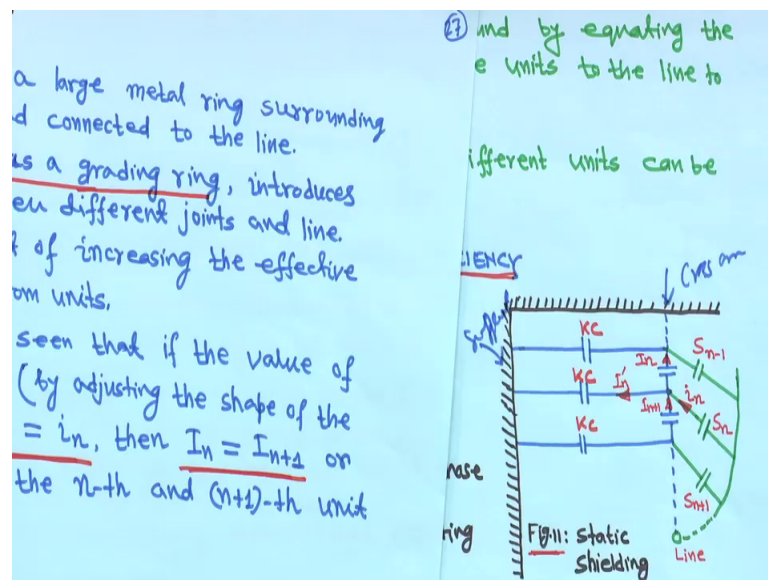 a large metal ring surrounding
d connected to the line.
as a grading ring, introduces
en different joints and line.
t of increasing the effective
om units.
seen that if the value of
(by adjusting the shape of the
= in, then In = In+1 or
the n-th and (n+1)-th unit
27 und by equating the
e units to the line to
ifferent units can be
IENCY
Cross arm
KC
Sn-1
In
KC
I'n
in
In+1
Sn
KC
Sn+1
nase
ring
Fig.11: Static
Shielding
Line